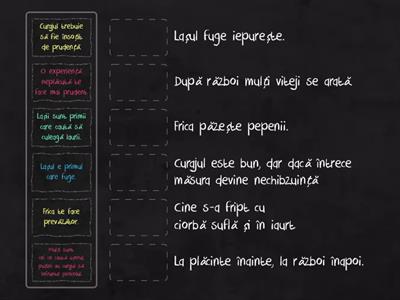 Curajul trebuie
să fie însoțit
de prudență
O experiență
neplăcută te
face mai prudent.
Lașii sunt primii
care caută să
culeagă laurii.
Lașul e primul
care fuge.
Frica te face
prevăzător.
Mulți sunt
cei ce laudă
puțini au curajul să
înfrunte pericolul.
Lașul fuge iepurește.
După război mulți viteji se arată
Frica păzește pepenii.
Curajul este bun, dar dacă întrece
măsura devine nechibzuință
Cine s-a fript cu
ciorbă suflă și în iaurt
La plăcinte înainte, la război înapoi.